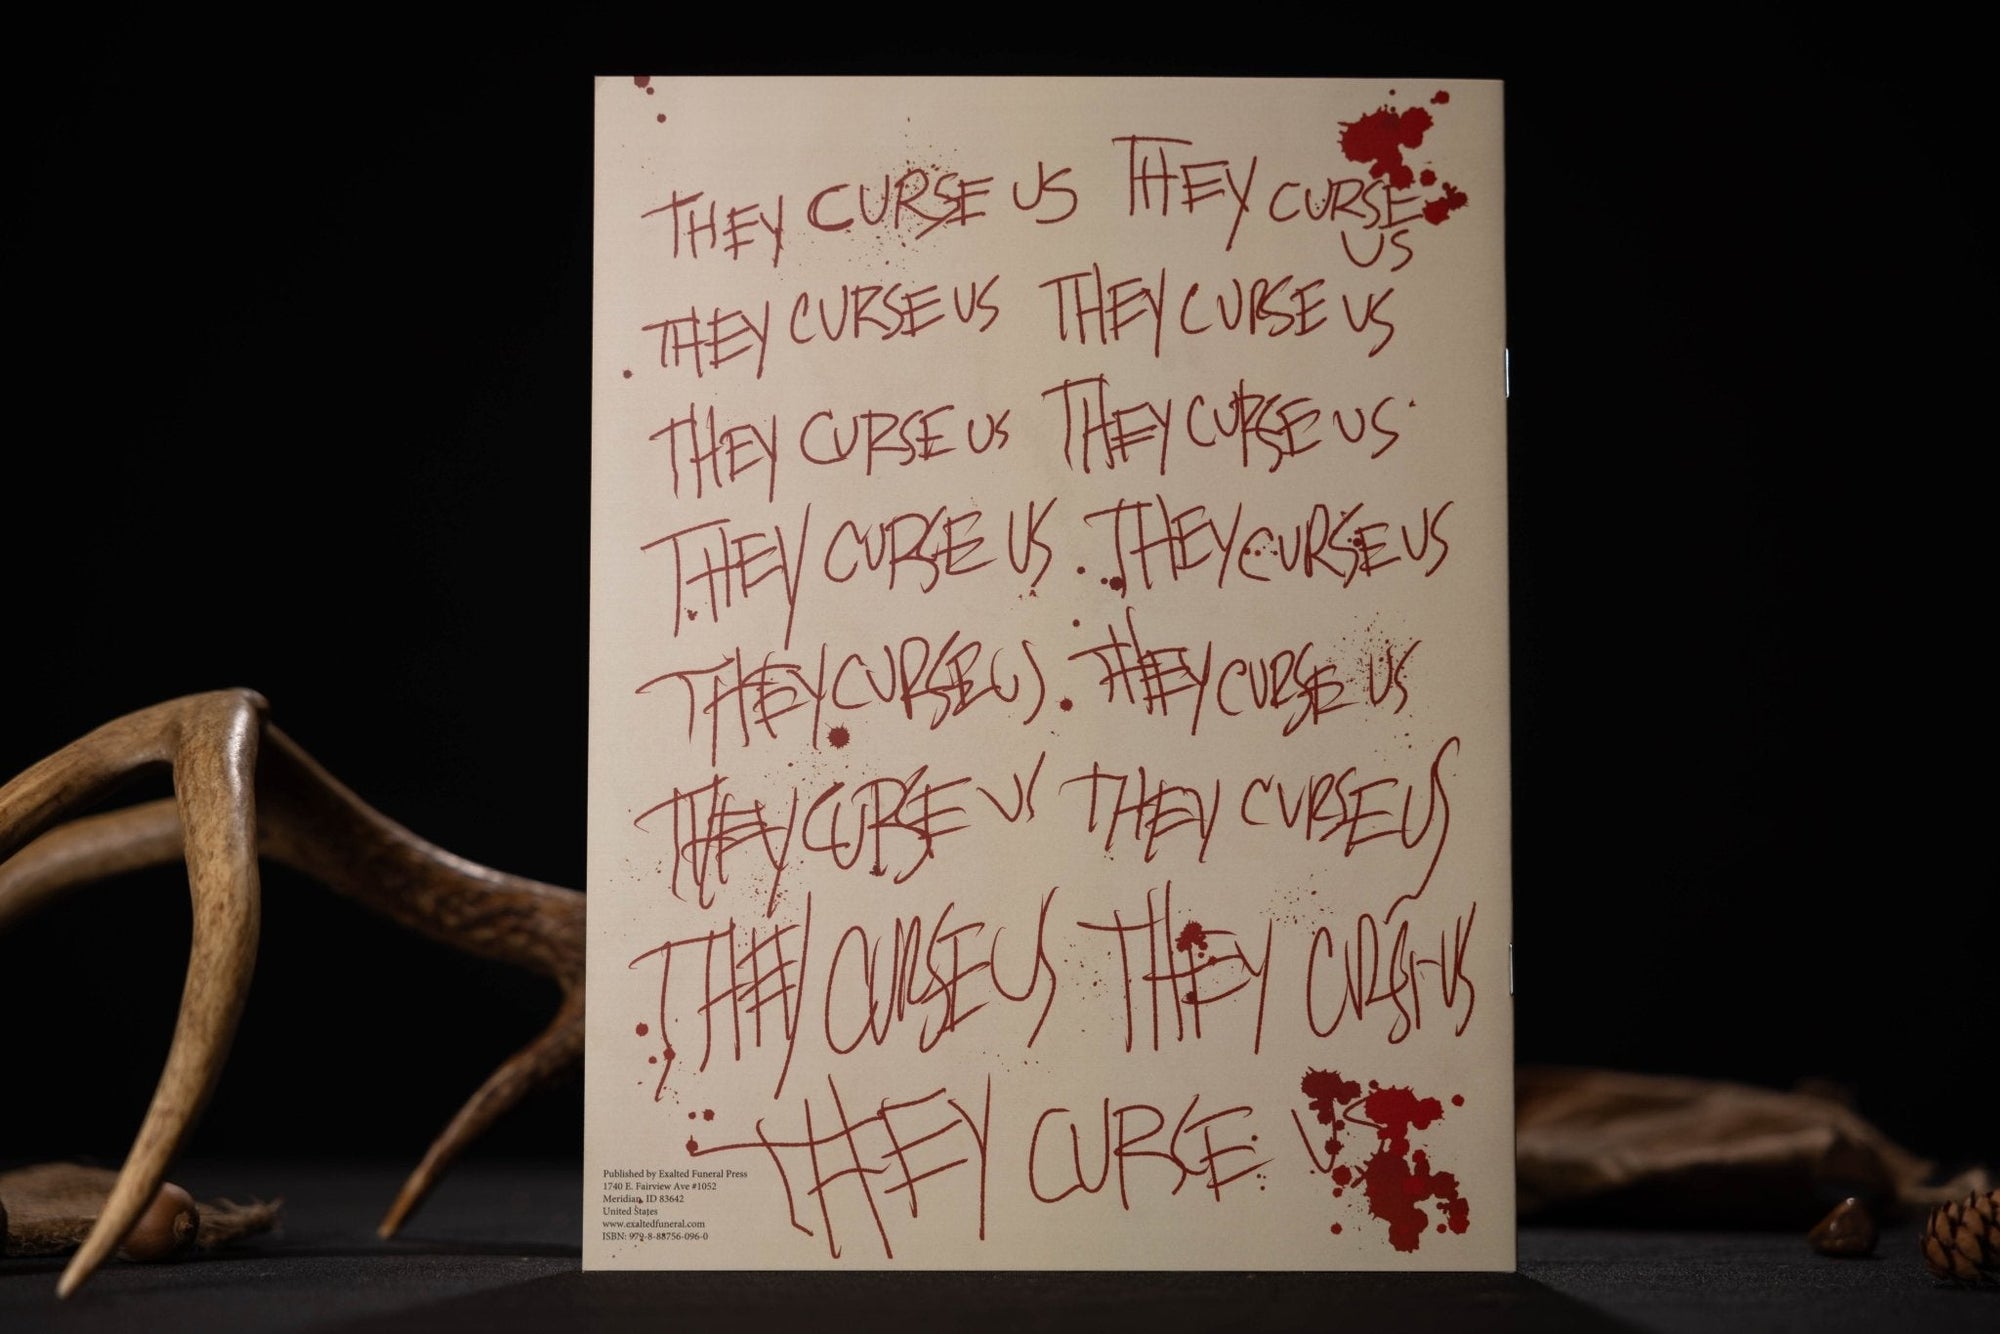 THEY CURSE US THEY CURSE
US
THEY CURSE US THEY CURSE US
THEY CURSE US THEY CURSE US
THEY CURSE US THEY CURSE US
THEY CURSE US THEY CURSE US
THEY CURSE US THEY CURSE US
THEY CURSE US THEY CURSE US
THEY CURSE US
Published by Exalted Funeral Press
1740 E. Fairview Ave #1052
Meridian, ID 83642
United States
www.exaltedfuneral.com
ISBN: 979-8-88756-096-0